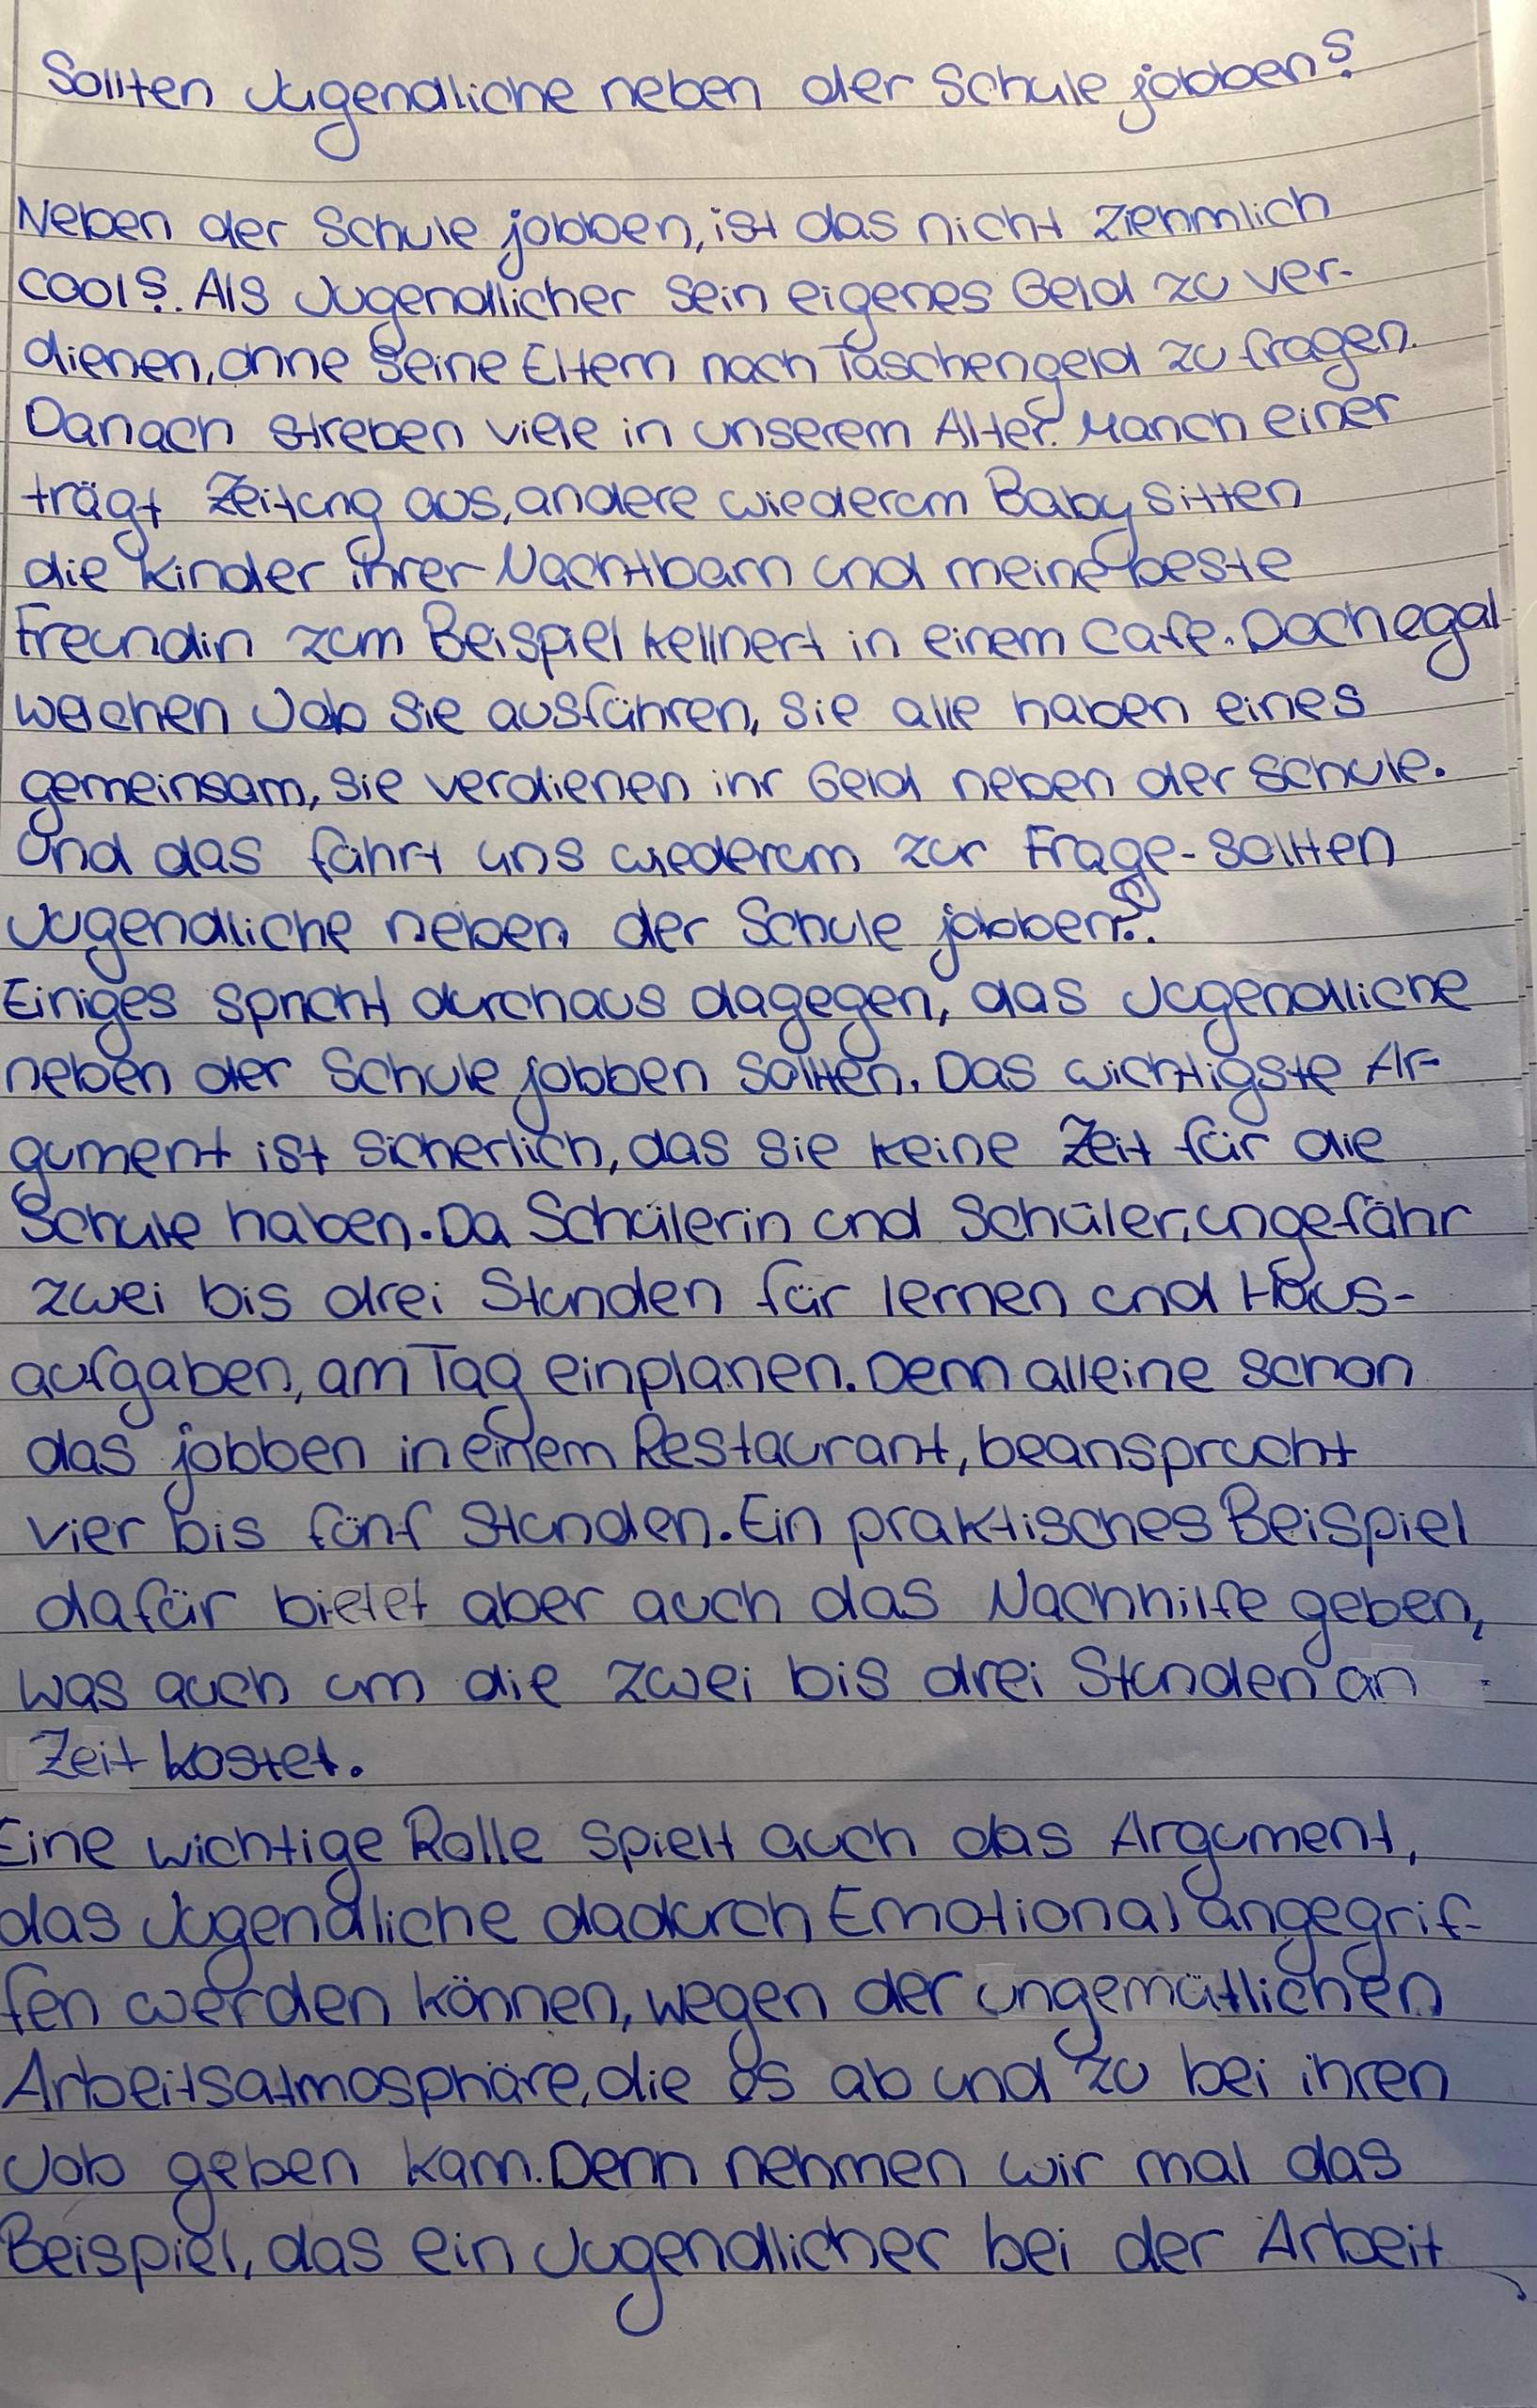 Sollten Jugendliche neben der Schule jobben?
Neben der Schule jobben, ist das nicht ziehmlich
cool?. Als Jugendlicher sein eigenes Geld zu ver-
dienen, ohne seine Eltern nach Taschengeld zu fragen.
Danach streben viele in unserem Alter. Manch einer
trägt Zeitung aus, andere wiederum Baby sitten
die Kinder ihrer Nachtbarn und meine beste
Freundin zum Beispiel kellnert in einem Cafe. Doch egal
welchen Job sie ausführen, sie alle haben eines
gemeinsam, sie verdienen ihr Geld neben der Schule.
Und das führt uns wiederum zur Frage- sollten
Jugendliche neben der Schule jobben?.
Einiges spricht durchaus dagegen, das Jugendliche
neben der Schule jobben sollten. Das wichtigste Ar-
gument ist sicherlich, das sie keine Zeit für die
Schule haben. Da Schülerin und Schüler, ungefähr
zwei bis drei Stunden für lernen und Haus-
aufgaben, am Tag einplanen. Denn alleine schon
das jobben in einem Restaurant, beansprucht
vier bis fünf Stunden. Ein praktisches Beispiel
dafür bietet aber auch das Nachhilfe geben,
was auch um die zwei bis drei Stunden an
Zeit kostet.
Eine wichtige Rolle spielt auch das Argument,
das Jugendliche dadurch Emotional angegrif-
fen werden können, wegen der ungemütlichen
Arbeitsatmosphäre, die es ab und zu bei ihren
Job geben kann. Denn nehmen wir mal das
Beispiel, das ein Jugendlicher bei der Arbeit